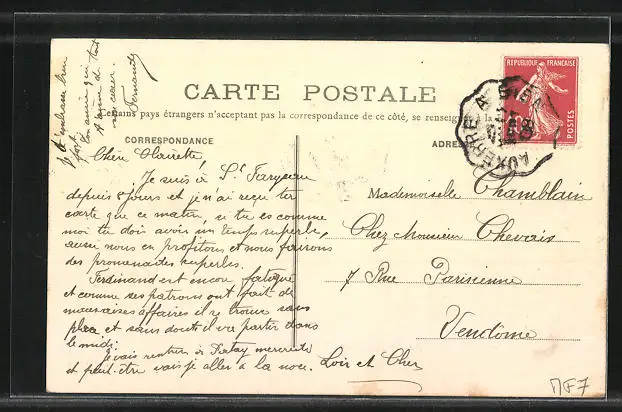 Je t'embrasse bien
fort
ton amie qui t'aime de tout
son cœur
Fernande
CARTE POSTALE
Certains pays étrangers n'acceptent pas la correspondance de ce côté, se renseigner à la
CORRESPONDANCE
ADRES
REPUBLIQUE FRANÇAISE
POSTES
AUXERRE A
Chère Clairette!
Je suis à St Fargeau
depuis 8 jours et je n'ai reçu ta
carte que ce matin, si tu es comme
moi tu dois avoir un temps superbe,
aussi nous en profitons et nous faisons
des promenades superbes.
Ferdinand est encore fatigué
et comme ses patrons ont fait de
mauvaises affaires il se trouve sans
place et sans doute il va partir dans
le midi.
Je vais rentrer à Patay mercredi
et peut-être vais je aller à la noce.
Mademoiselle Chamblain
Chez Monsieur Chevais
7 Rue Parisienne
Vendôme
Loir et Cher
MF7